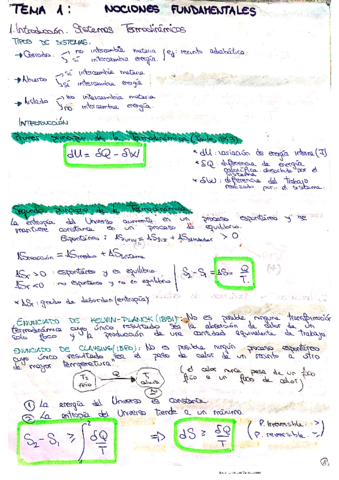 TEMA 1: NOCIONES FUNDAMENTALES
1. Introducción. Sistemas Termodinámicos
TIPOS DE SISTEMAS:
→ Cerrados no intercambia materia
sí intercambia energía
ej: recinto adiabático.
→ Abierto sí intercambia materia
sí intercambia energía
→ Aislado no intercambia materia
no intercambia energía
INTRODUCCIÓN
Primer Principio de la Termodinámica
dU = δQ - δW
* dU: variación de energía interna (J)
* δQ: diferencia de energía calorífica absorbida por el sistema
* δW: diferencia del trabajo realizado por el sistema
Segundo Principio de la Termodinámica
La entropía del Universo aumenta en un proceso espontáneo y se
mantiene constante en un proceso de equilibrio.
> 0
ΔS > 0: espontáneo y en equilibrio
ΔS < 0: no espontáneo y no en equilibrio
S₂ - S₁ = ΔS = Q/T
* ΔS: grado de desorden (entropía)
ENUNCIADO DE KELVIN-PLANCK (1851): No es posible ninguna transformación
termodinámica cuyo único resultado sea la absorción de calor de un
solo foco y la producción de una cantidad equivalente de trabajo
ENUNCIADO DE CLAUSIUS (1850): No es posible ningún proceso espontáneo
cuyo único resultado sea el paso de calor de un recinto a otro
de mayor temperatura.
T₁ frío Q T₂
(el calor nunca pasa de un foco
frío a un foco de calor)
① La energía del Universo es constante
② La entropía del Universo tiende a un máximo
S₂ - S₁ ≥ ∫ δQ/T ⇒ dS ≥ δQ/T
(P. irreversible >)
(P. reversible =)